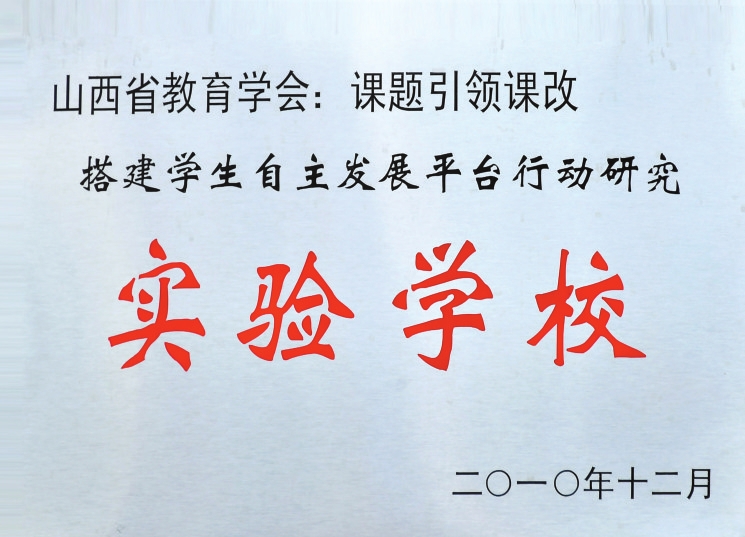 山西省教育学会：课题引领课改
搭建学生自主发展平台行动研究
实验学校
二〇一〇年十二月